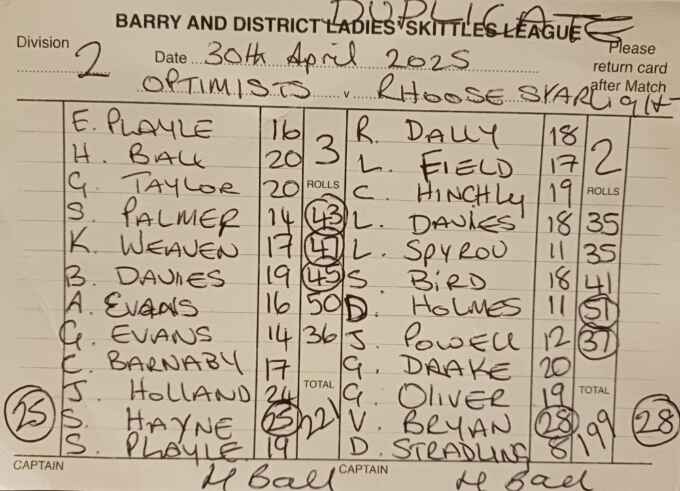 DUPLICATE
BARRY AND DISTRICT LADIES' SKITTLES LEAGUE
Division 2 Date 30th April 2025 Please return card after Match
OPTIMISTS v RHOOSE STARLIGHT
E. PLAYLE 16 3 R. DALLY 18 2
H. BALL 20 L. FIELD 17
G. TAYLOR 20 ROLLS C. HINCHLY 19 ROLLS
S. PALMER 14 43 L. DAVIES 18 35
K. WEAVEN 17 47 L. SPYROU 11 35
B. DAVIES 19 45 S. BIRD 18 41
A. EVANS 16 50 D. HOLMES 11 51
G. EVANS 14 36 J. POWELL 12 37
C. BARNABY 17 G. DRAKE 20
J. HOLLAND 24 TOTAL G. OLIVER 19 TOTAL
25 S. HAYNE 25 221 V. BRYAN 28 199 28
S. PLAYLE 19 D. STRADLING 8
CAPTAIN H Ball CAPTAIN H Ball